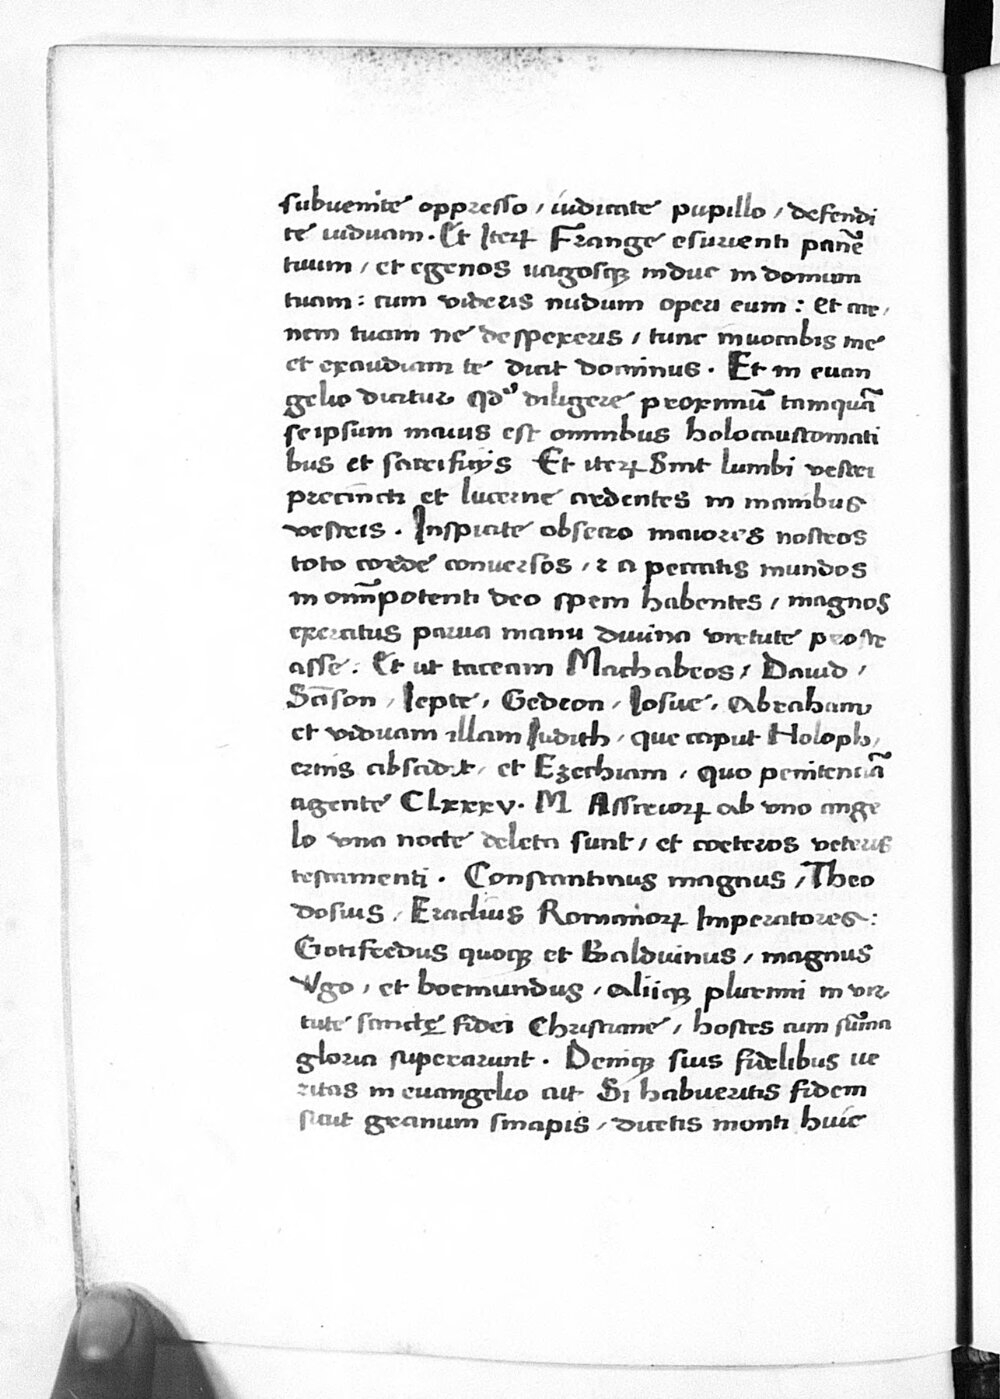 subuenite oppresso / iudicate pupillo / defendi
te uiduam. Et Iterꝝ Frange esurienti panē
tuum / et egenos uagosqꝫ induc in domum
tuam : cum uideris nudum operi eum : et car,
nem tuam ne despexeris / tunc inuocabis me
et exaudiam te dicit dominus. Et in euan
gelio dicitur qd' diligere proximū tamquā
se ipsum maius est omnibus holocaustomati
bus et sacrificijs Et iterꝝ Sint lumbi vestri
precincti et lucerne ardentes in manibus
vestris. Inspicite obsecro maiores nostros
toto corde conuersos / ⁊ a peccatis mundos
in omīpotenti deo spem habentes / magnos
exercitus parua manu diuina virtute prostr
asse : Et ut taceam Machabeos / Dauid /
Sāson / Iepte / Gedeon / Iosue / Abraham
et viduam illam Judith / que caput Holoph,
ernis abscidit / et Ezechiam / quo penitenciā
agente Clxxxv. M Assiriorꝝ ab vno ange
lo vna nocte deleta sunt / et coeteros veteris
testamenti. Constantinus magnus / Theo
dosius / Eraclius Romanorꝝ Imperatores :
Gotifredus quoqꝫ et Balduinus / magnus
Vgo / et boemundus / Aliiqꝫ plurimi in vir,
tute sanctę fidei Christiane / hostes cum sūma
gloria superarunt. Deniqꝫ suis fidelibus ue
ritas in euangelio ait Si habueritis fidem
sicut granum sinapis / dicetis monti huic